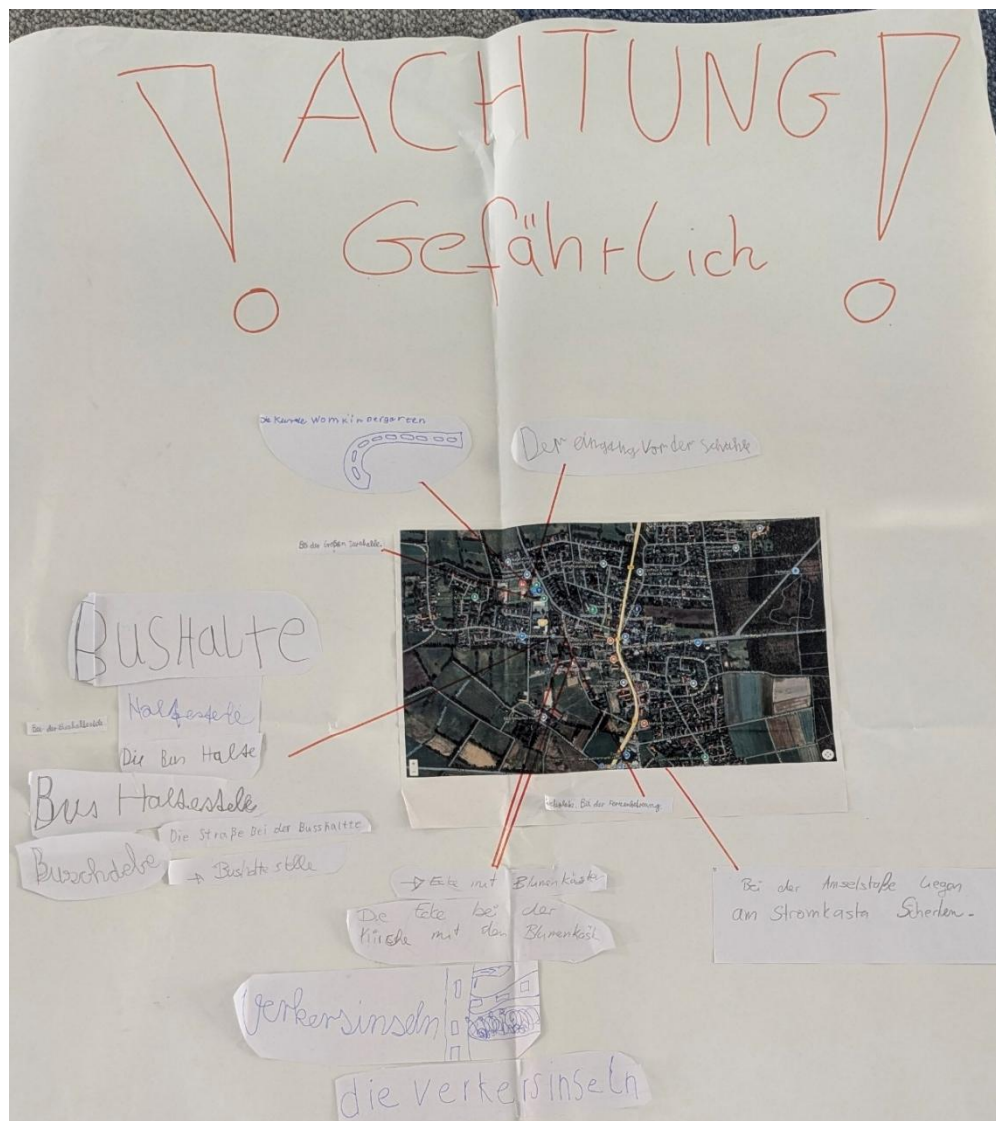 ! ACHTUNG !
Gefährlich
Die Kurve vom Kindergarten
Der eingang vor der Schuhle
Bei der
BUSHalte
Haltestelle
Bei der Bushaltestelle
Die Bus Halte
Bus Haltestelle
Die Straße Bei der Busshaltte
Buschdebe
→ Bushltestelle
Bei der
→ Ecke mit Blumenkisten
Die Ecke bei der
Kirche mit den Blumenkash
Bei der Amselstaße liegen
am Stromkasta Scherben.
Verkersinseln
die verkersinseln